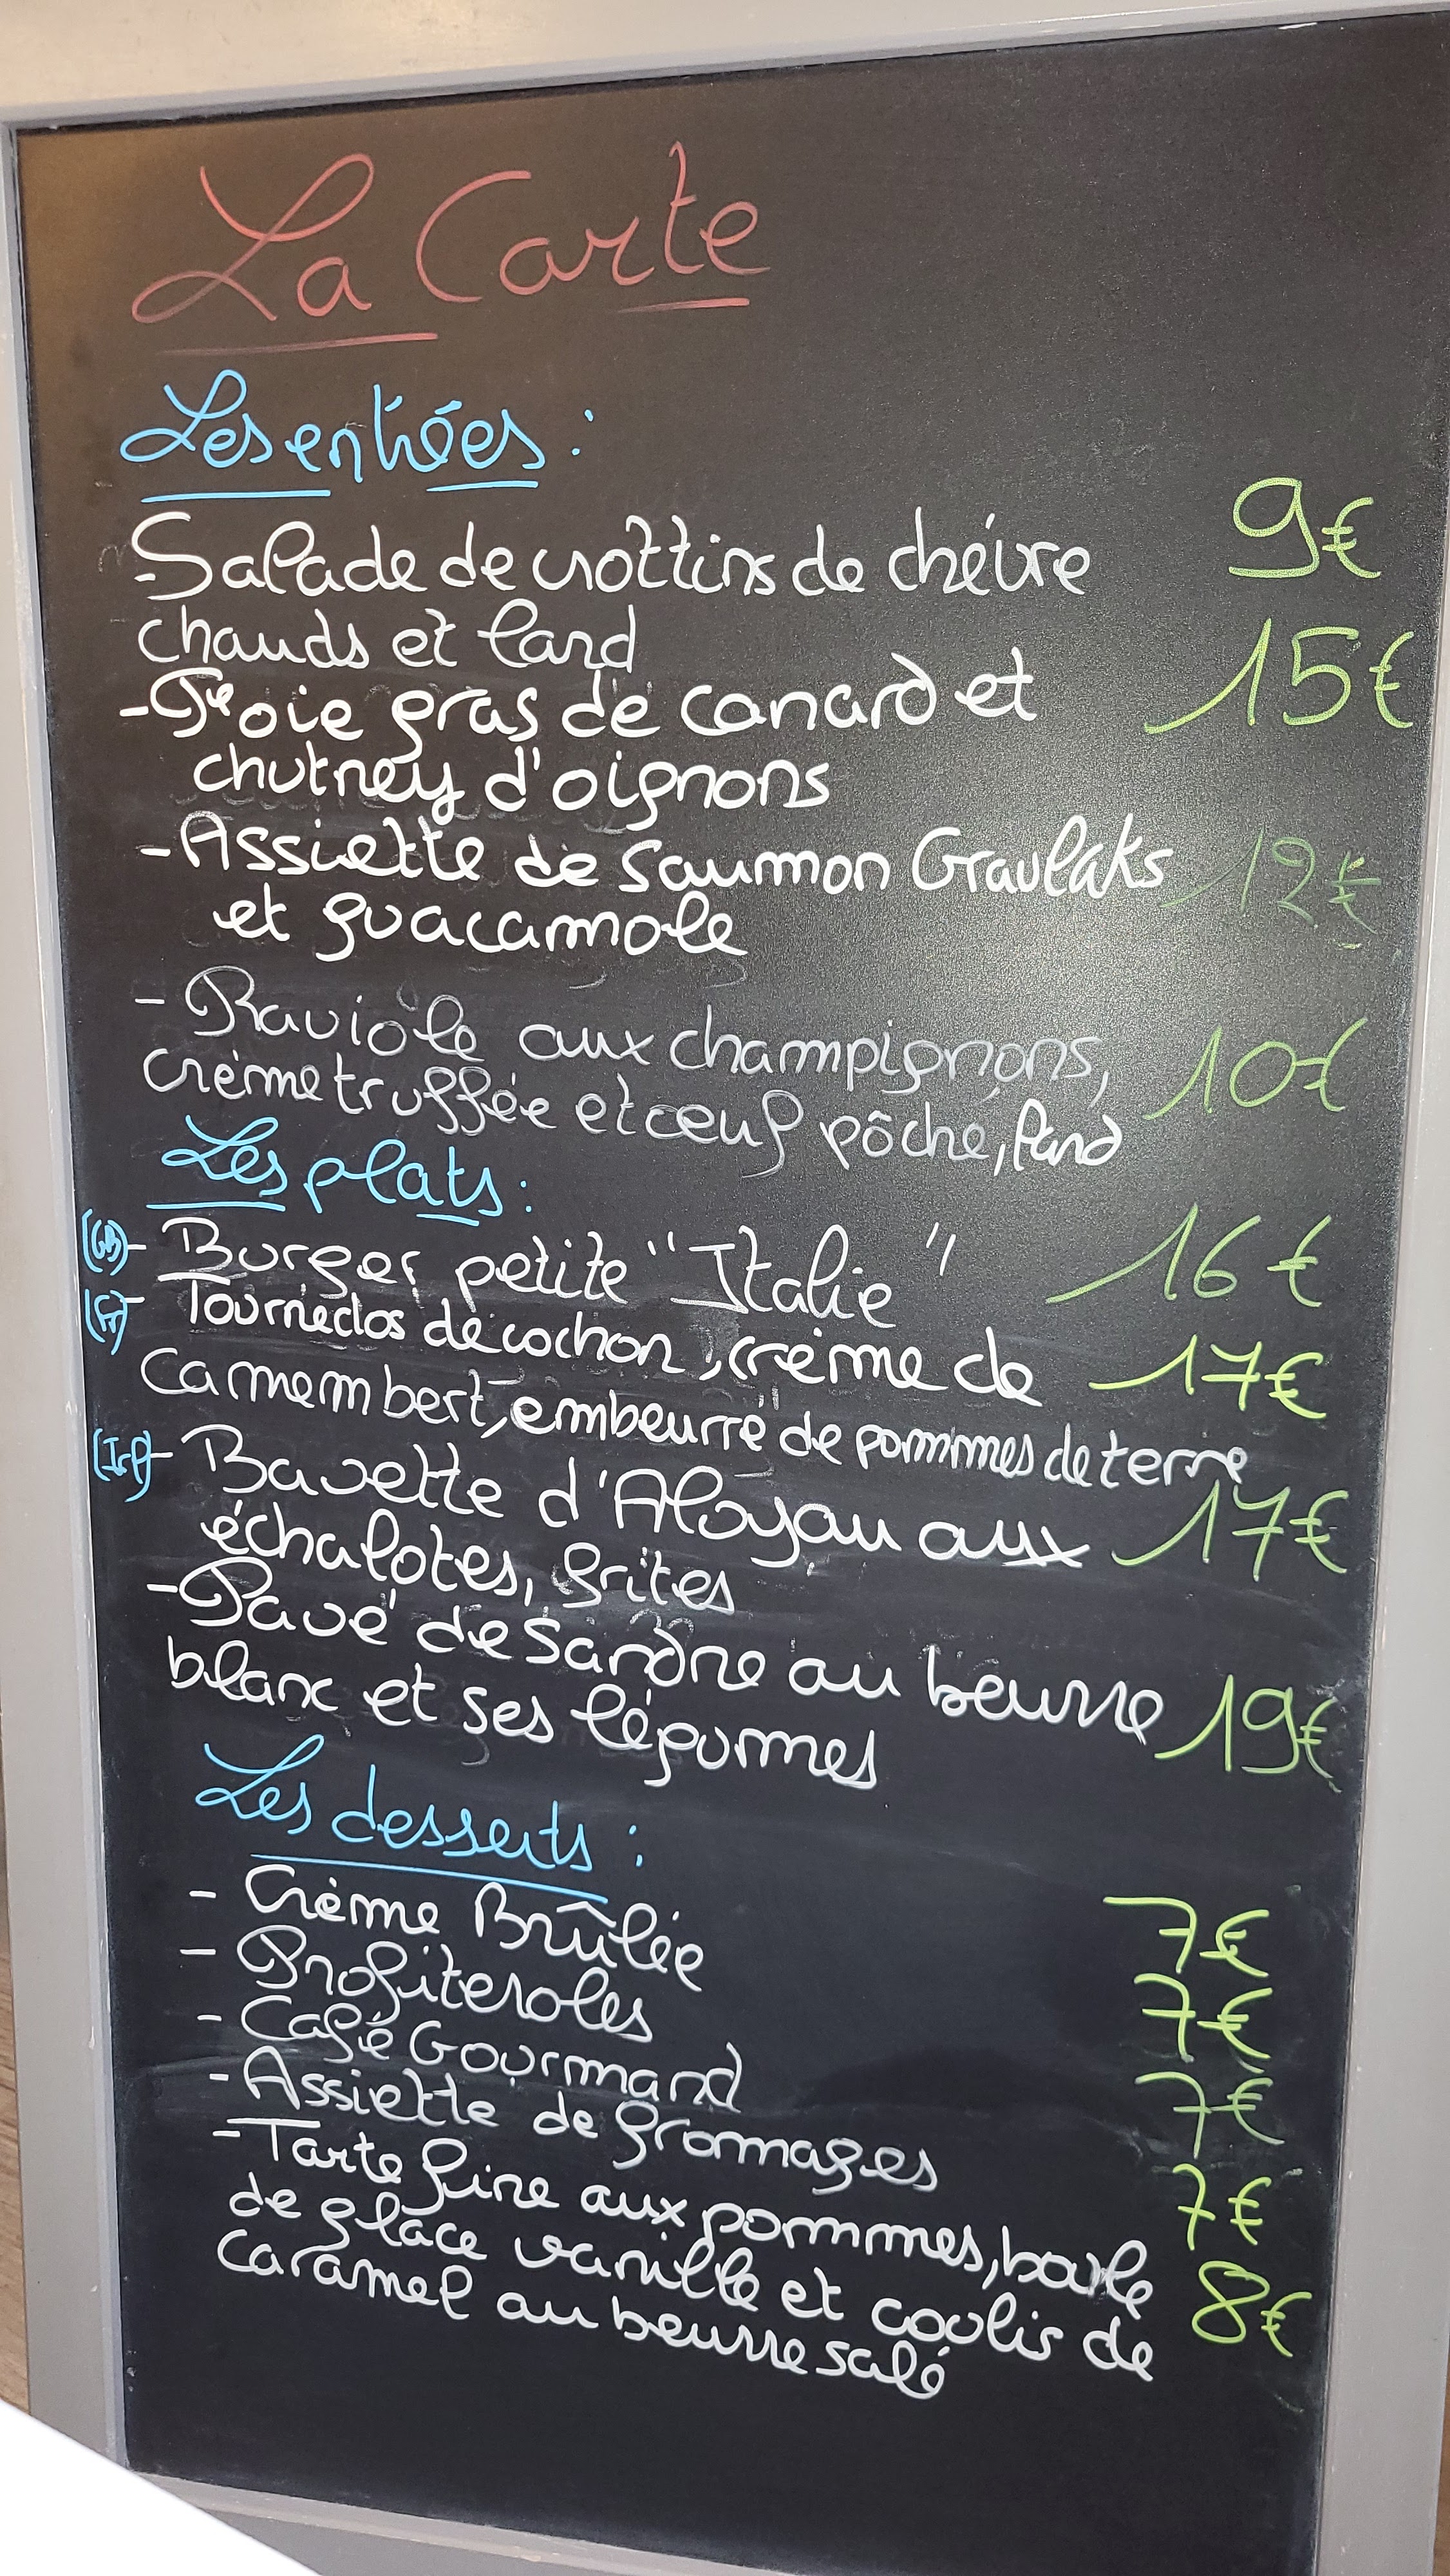 La Carte
Les entrées :
- Salade de crottins de chévre 9€
chauds et lard
- Foie gras de canard et 15€
chutney d'oignons
- Assiette de saumon Gravlaks 12€
et guacamole
- Raviole aux champignons, 10€
crème truffée et œuf pôché, lard
Les plats :
(GB) - Burger petite "Italie" 16€
(Fr) - Tournedos de cochon, crème de 17€
Camembert, embeurré de pommes de terre
(Irl) - Bavette d'Aloyau aux 17€
échalotes, frites
- Pavé de sandre au beurre 19€
blanc et ses légumes
Les desserts :
- Crème Brûlée 7€
- Profiteroles 7€
- Café Gourmand 7€
- Assiette de fromages 7€
- Tarte fine aux pommes, boule
de glace vanille et coulis de 8€
caramel au beurre salé